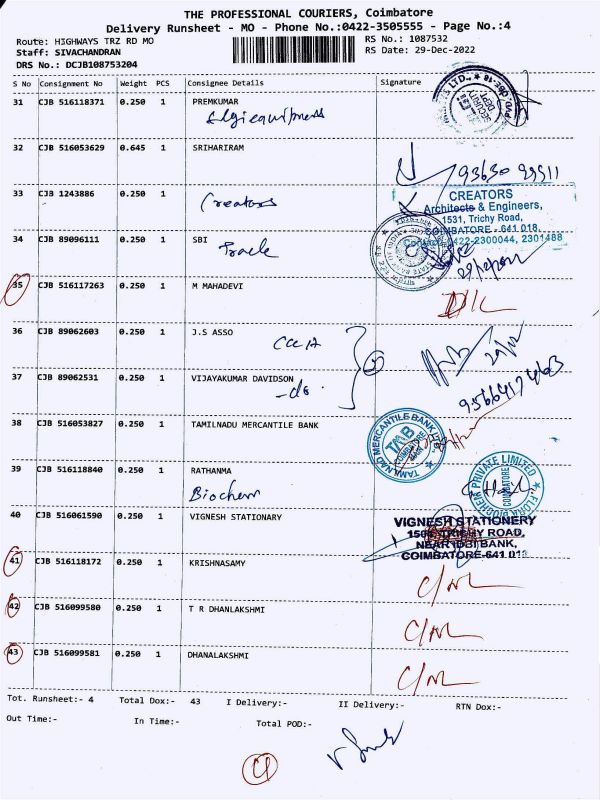 THE PROFESSIONAL COURIERS, Coimbatore
Delivery Runsheet - MO - Phone No.:0422-3505555 - Page No.:4
Route: HIGHWAYS TRZ RD MO
RS No.: 1087532
Staff: SIVACHANDRAN
RS Date: 29-Dec-2022
DRS No.: DCJB108753204
S No Consignment No Weight PCS Consignee Details Signature
31 CJB 516118371 0.250 1 PREMKUMAR
Elgi equipments
SECURITY DEPT.
32 CJB 516053629 0.645 1 SRIHARIRAM
93630 99511
33 CJB 1243886 0.250 1 Creators
CREATORS
Architects & Engineers,
1531, Trichy Road,
COIMBATORE - 641 018.
Contact: 0422-2300044, 2301488
34 CJB 89096111 0.250 1 SBI
Trade
35 CJB 516117263 0.250 1 M MAHADEVI
D/L
36 CJB 89062603 0.250 1 J.S ASSO
29/12
37 CJB 89062531 0.250 1 VIJAYAKUMAR DAVIDSON
-do-
38 CJB 516053827 0.250 1 TAMILNADU MERCANTILE BANK
TAMILNAD MERCANTILE BANK LTD.
TMB
COIMBATORE
39 CJB 516118840 0.250 1 RATHANMA
Biochem
PRIVATE LIMITED
COIMBATORE
40 CJB 516061590 0.250 1 VIGNESH STATIONARY
VIGNESH STATIONERY
1504, TRICHY ROAD,
NEAR IDBI BANK,
COIMBATORE-641 018
41 CJB 516118172 0.250 1 KRISHNASAMY
42 CJB 516099580 0.250 1 T R DHANLAKSHMI
43 CJB 516099581 0.250 1 DHANALAKSHMI
Tot. Runsheet:- 4 Total Dox:- 43 I Delivery:- II Delivery:- RTN Dox:-
Out Time:- In Time:- Total POD:-